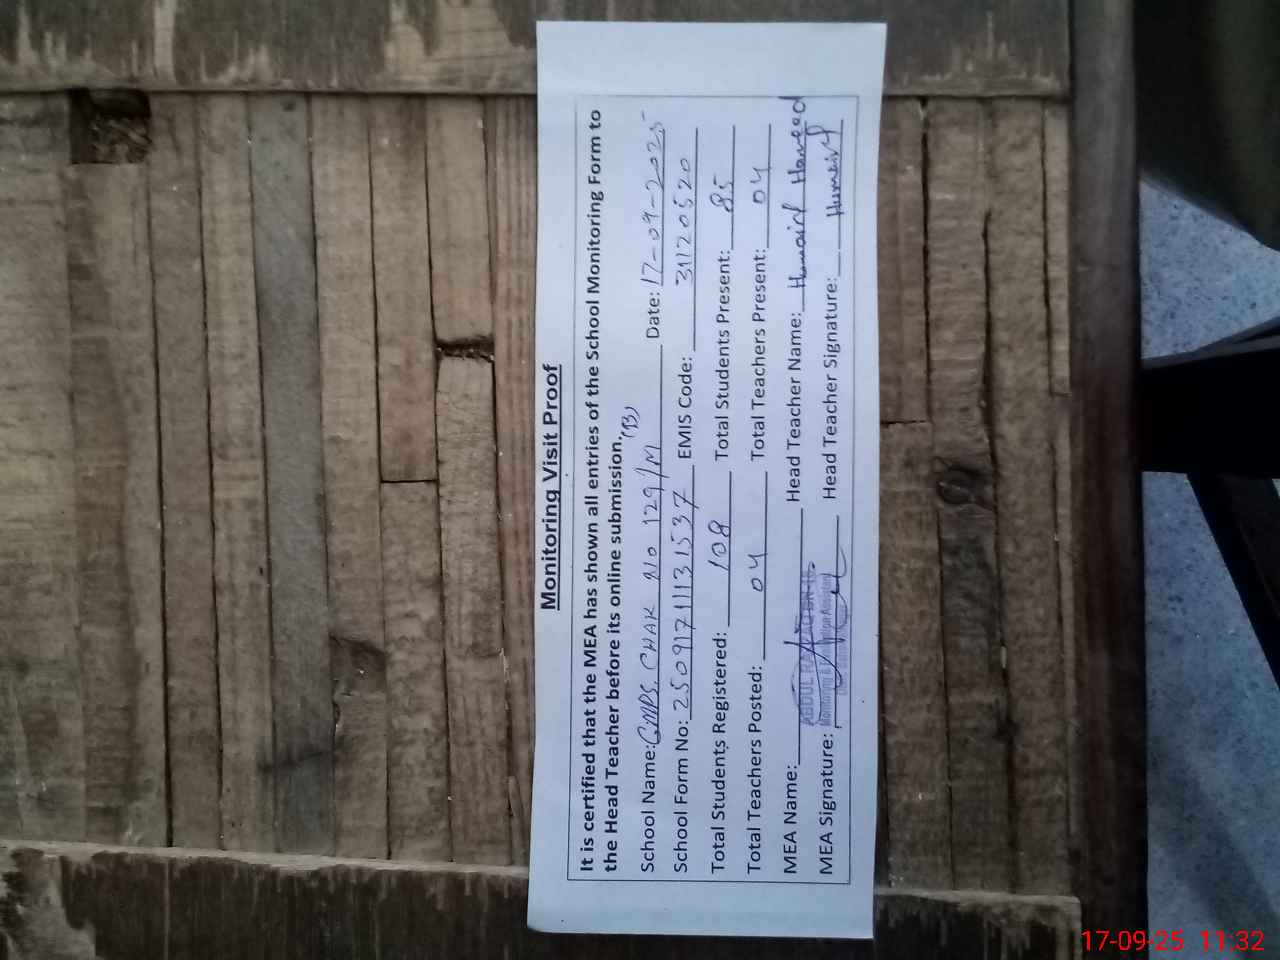 Monitoring Visit Proof
It is certified that the MEA has shown all entries of the School Monitoring Form to
the Head Teacher before its online submission.
School Name: GMPS, CHAK NO 129/M (B) Date: 17-09-2025
School Form No: 25091711131537 EMIS Code: 31120520
Total Students Registered: 108 Total Students Present: 85
Total Teachers Posted: 04 Total Teachers Present: 04
MEA Name: ABDUL Head Teacher Name: Humaira Hameed
MEA Signature: Monitoring & Evaluation Assistant Head Teacher Signature: Humaira
17-09-25 11:32